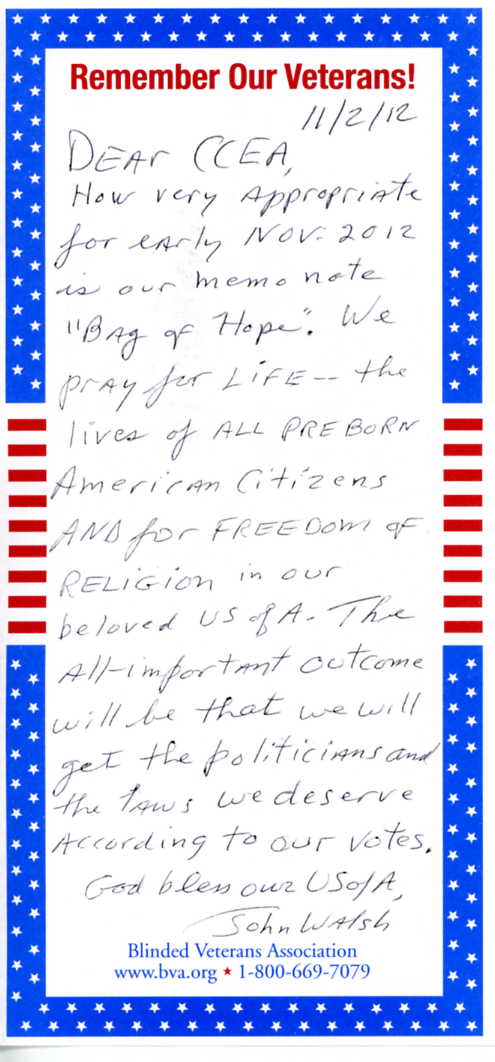 Remember Our Veterans!
11/2/12
DEAr CCEA,
How very Appropriate
for eArly NOV. 2012
is our memo note
"BAg of Hope". We
prAy for LIFE -- the
lives of ALL PREBORN
AmericAn Citizens
AND for FREEDOM OF
RELIGION in our
beloved US of A. The
All-importAnt outcome
will be that we will
get the politiciAns and
the lAws we deserve
According to our votes.
God bless our US of A,
John WAlsh
Blinded Veterans Association
www.bva.org ★ 1-800-669-7079